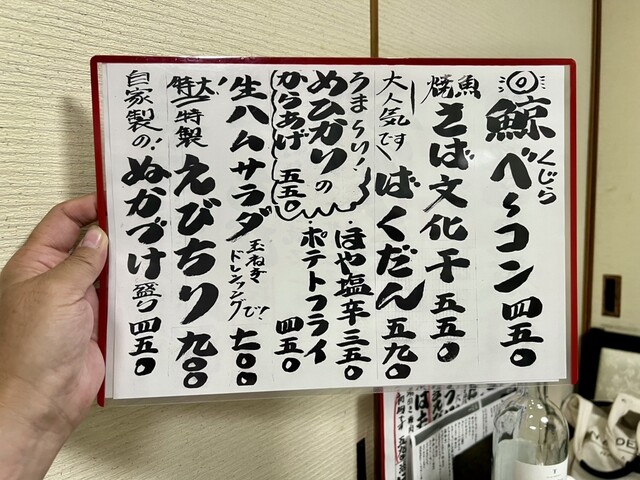 鯨べ〜コン 四五〇
くじら
焼魚 さば文化干 五五〇
大人気です ばくだん 五九〇
うま〜い！
めひかりの
からあげ 五五〇
・ほや塩辛 三五〇
・ポテトフライ 四五〇
生ハムサラダ 玉ねぎドレッシングで！ 七〇〇
特大！特製 えびちり 九〇〇
自家製の！ ぬかづけ 盛り 四五〇